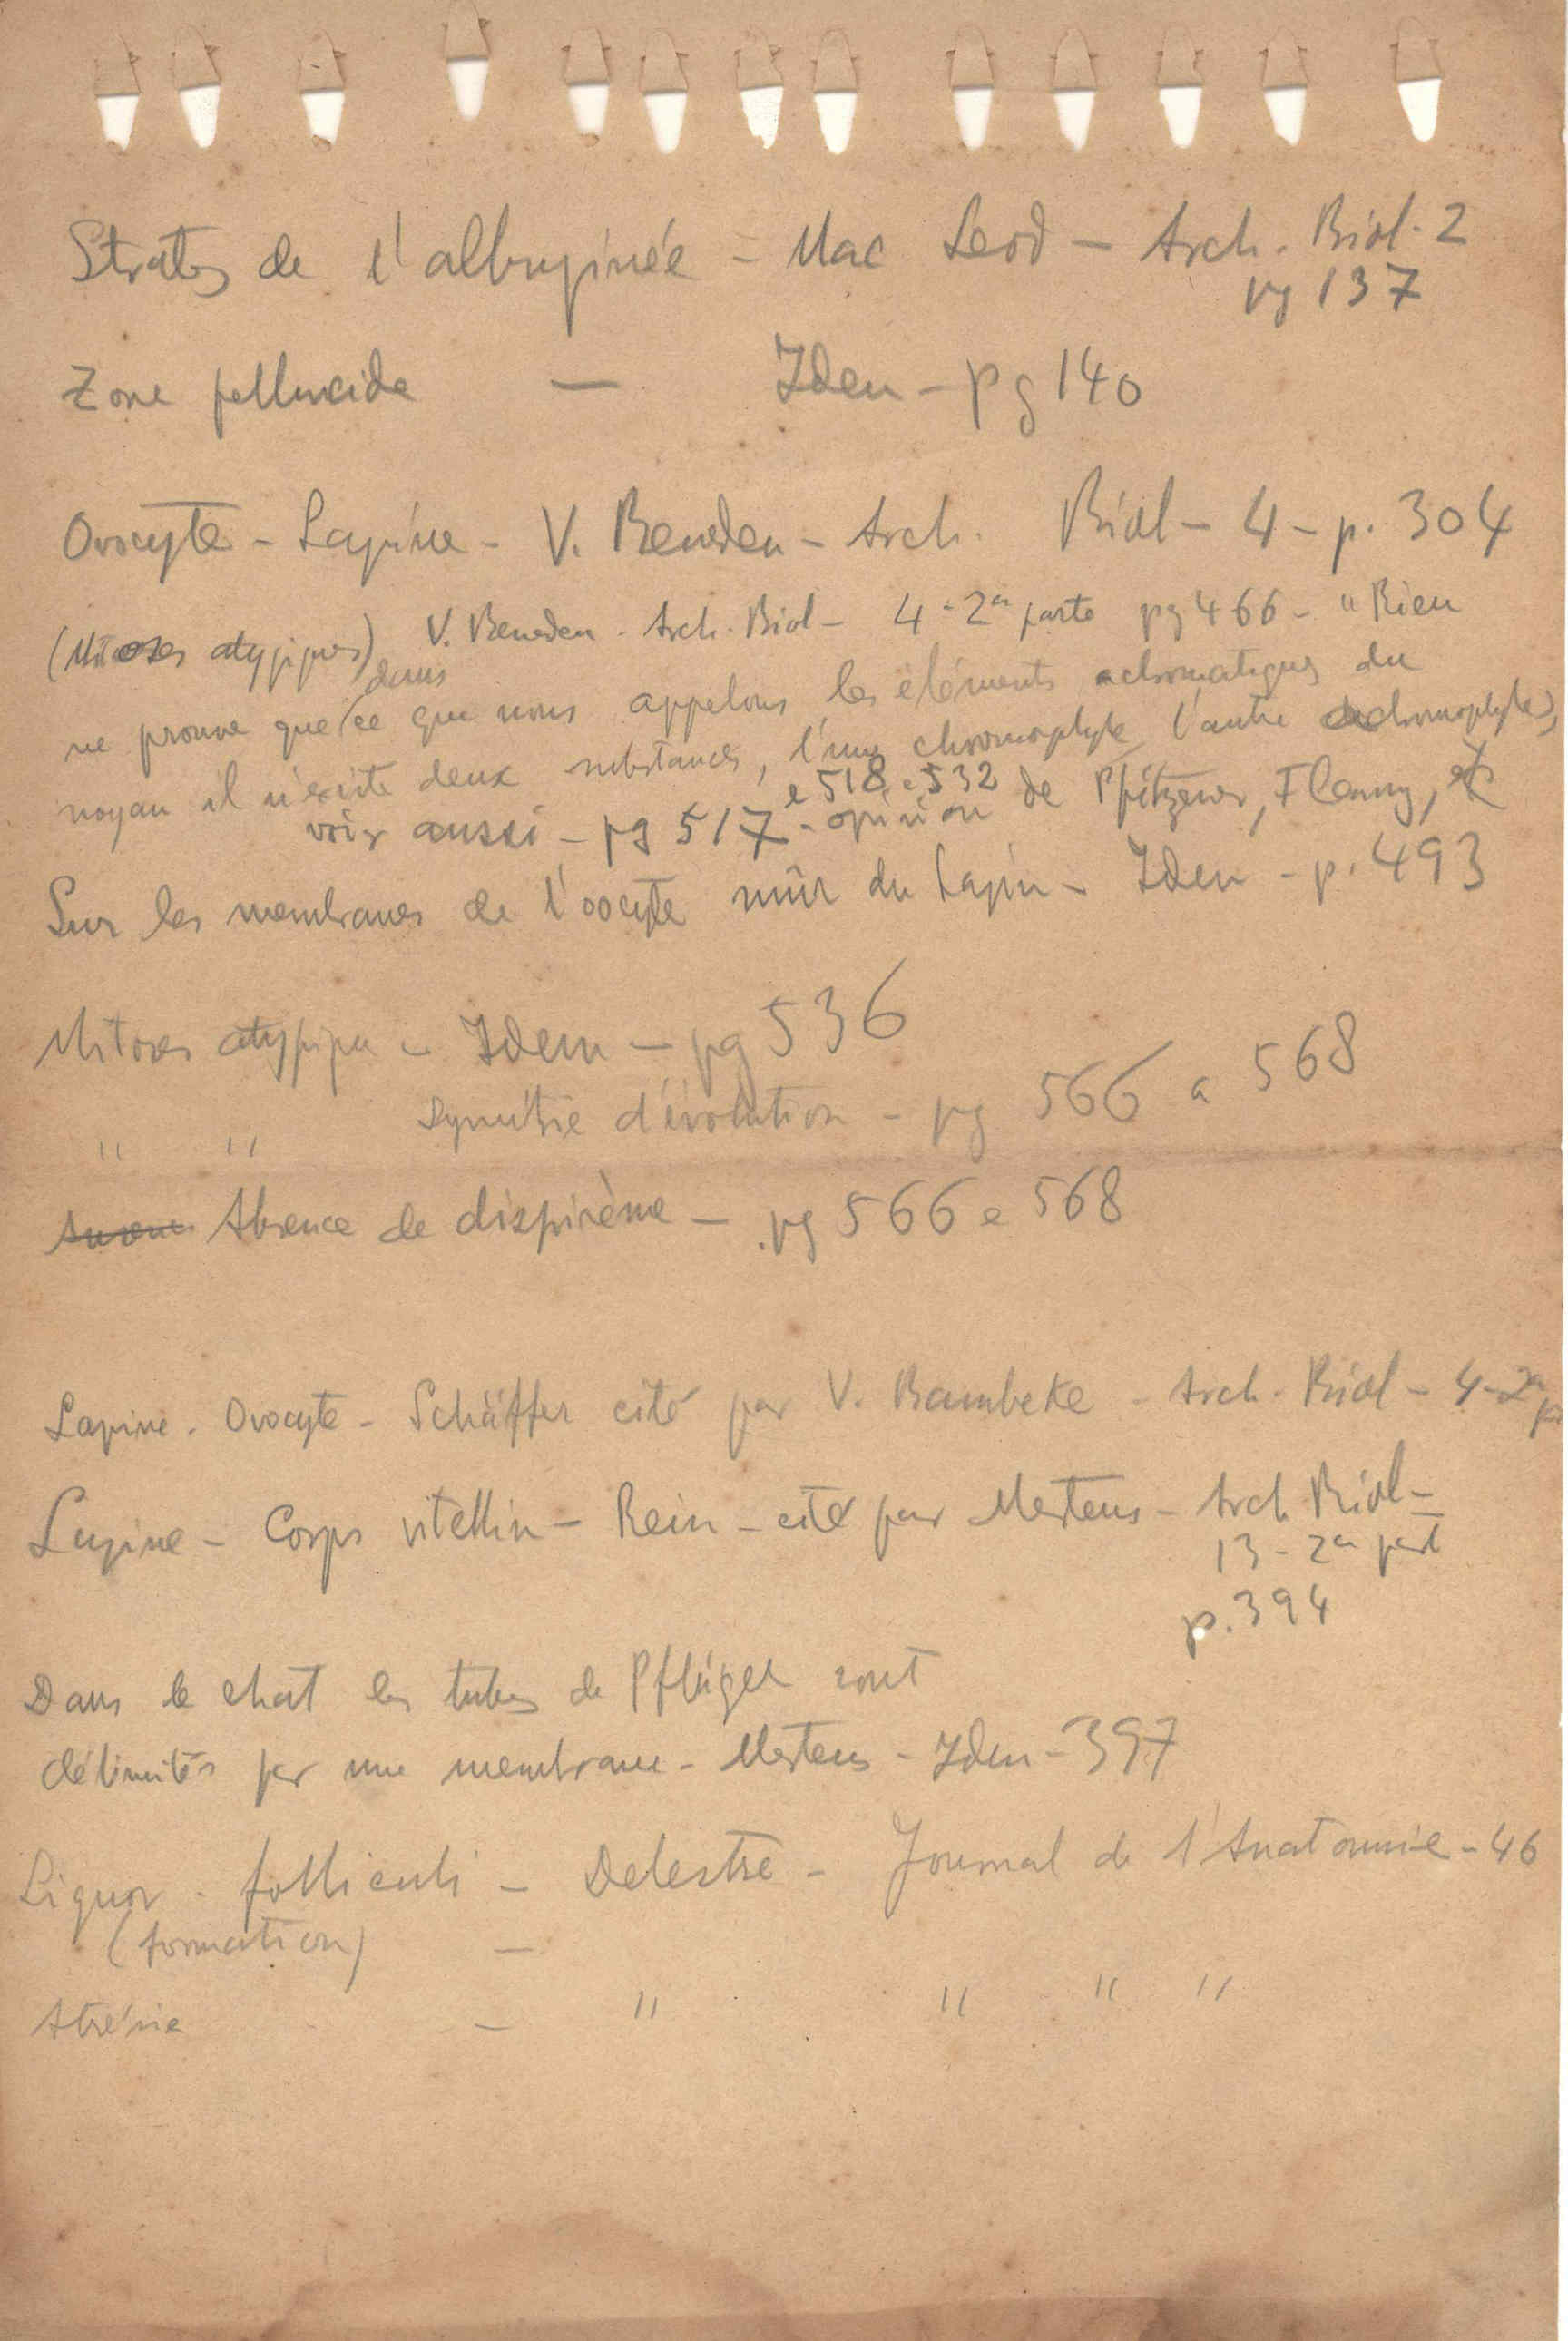 Strates de l'albuginée = Mac Leod - Arch. Biol. 2
pg 137
Zone pellucide - Idem - pg 140
Ovocyte - Lapine - V. Beneden - Arch. Biol - 4 - p. 304
(Mitoses atypiques) V. Beneden - Arch. Biol - 4 - 2ª parte pg 466 - "Rien
ne prouve que dans ce que nous appelons les éléments achromatiques du
noyau il n'existe deux substances, l'une chromophyle l'autre achromophyle)
voir aussi - pg 517 e 518 e 532 - opinion de Pfitzener, Flemmg, etc
Sur les membranes de l'oocyte mûr du Lapin - Idem - p. 493
Mitoses atypiques - Idem - pg 536
" " Symétrie d'évolution - pg 566 a 568
Absence de dispirème - pg 566 e 568
Lapine - Ovocyte - Schäffer cité par V. Bambeke - Arch. Biol - 4 - 2ª p
Lapine - Corps vitellin - Rein - cité par Mertens - Arch Biol -
13 - 2ª part
p. 394
Dans le chat les tubes de Pflüger sont
délimités par une membrane - Mertens - Idem - 397
Liquor folliculi - Delestre - Journal de l'Anatomie - 46
(formation) -
Atrésie - " " " "